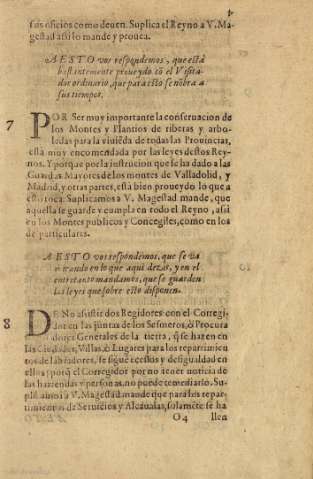 sus oficios como deuen. Suplica el Reyno a V. Ma-
gestad assi lo mande y prouea.
A ESTO vos respondemos, que està
bastantemente proueydo cõ el Visita-
dor ordinario, que para esto se nõbra a
sus tiempos.
7
POR Ser muy importante la conseruacion de
los Montes y Plantios de riberas y arbo-
ledas para la viuiẽda de todas las Prouincias,
està muy encomendada por las leyes destos Rey-
nos. Y porque por la instrucion que se las dado a las
Guardas Mayores de los montes de Valladolid, y
Madrid, y otras partes, està bien proueydo lo que a
esto toca. Suplicamos a V. Magestad mande, que
aquella se guarde y cumpla en todo el Reyno, assi
en los Montes publicos y Concegiles, como en los
de particulares.
A ESTO vos respondemos, que se va
mirando en lo que aqui dezis, y en el
entretanto mandamos, que se guarden
las leyes que sobre esto disponen.
8
DE No assistir dos Regidores con el Corregi-
dor en las juntas de los Sesmeros, ò Procura
dores Generales de la tierra, q̃ se hazen en
las Ciudades, Villas, ò Lugares para los repartimien
tos de labradores, se sigue excessos y desigualdad en
ellos porq̃ el Corregidor por no tener noticia de
las haziendas y personas, no puede remediarlo. Su-
plicamos a V. Magestad mande que para los repar-
timientos de Seruicios y Alcaualas, solamẽte se ha
O 4
llen